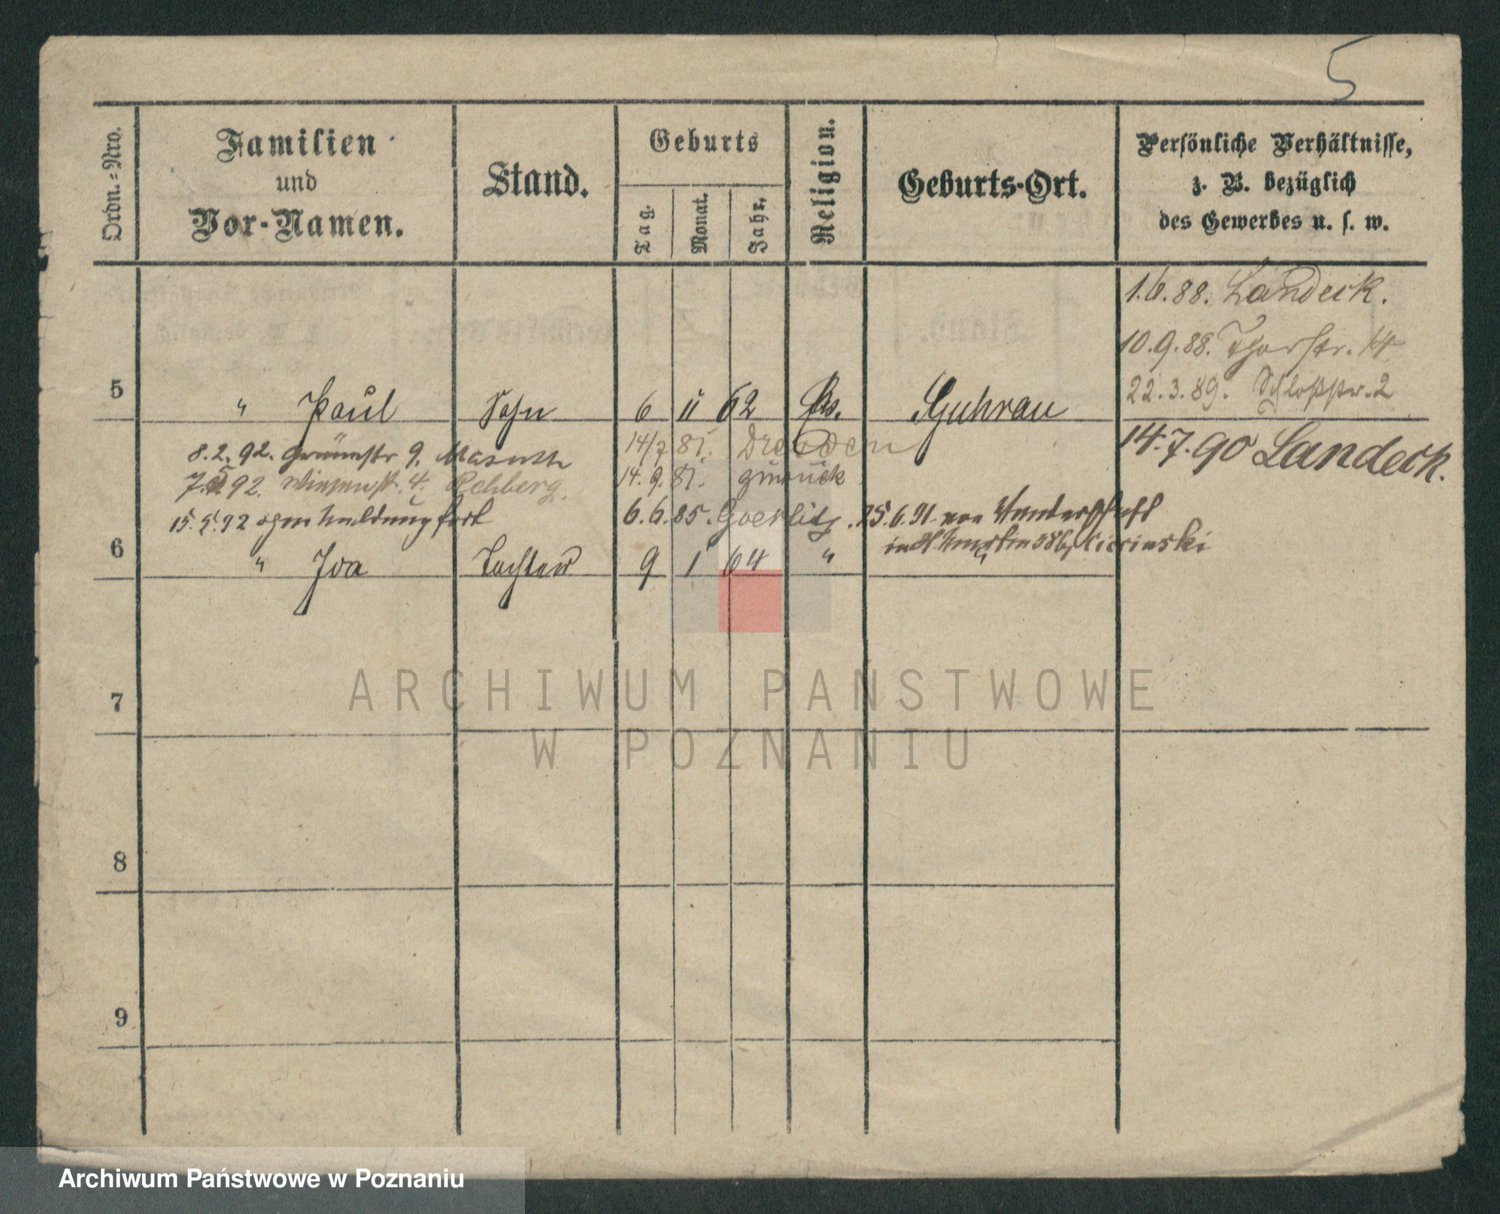 5
Ordn.-Nro.
Familien
und
Vor-Namen.
Stand.
Geburts
Tag.
Monat.
Jahr.
Religion.
Geburts-Ort.
Persönliche Verhältnisse,
z. B. bezüglich
des Gewerbes u. s. w.
1.6.88. Landeck.
10.9.88. Thorstr. 14
22.3.89. Schloßstr. 2
5 " Paul Sohn 6 11 62 Guhrau
14.7.90 Landeck.
8.2.92. Grünestr 9.
14/7 81. Dresden
7.5 92. Wiesenstr. 4. Rehberg.
14.9.81. zurück
15.5.92 ohne Meldung fort
6.6.85. Goerlitz.
15.6.91 von Wanderschaft
in St Martin
6 " Iva Tochter 9 1 64 " "
7
8
9
ARCHIWUM PAŃSTWOWE
W POZNANIU
Archiwum Państwowe w Poznaniu